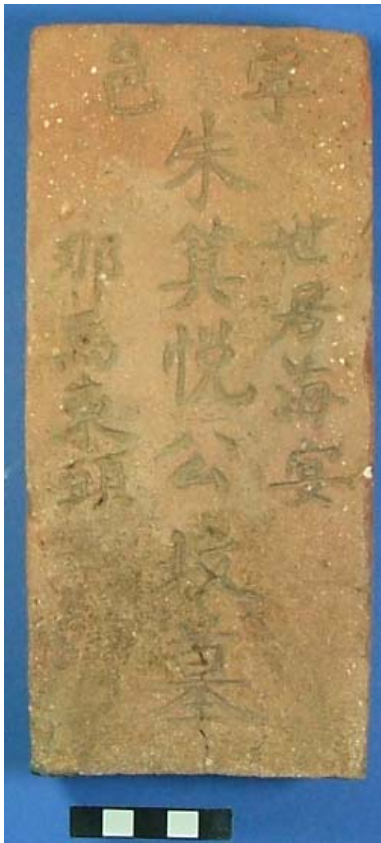 寧邑
世居海宴
朱箕悦公坟墓
那馬東頭